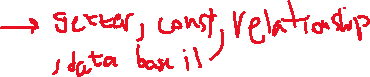 → getter, const, relationship
, data base il